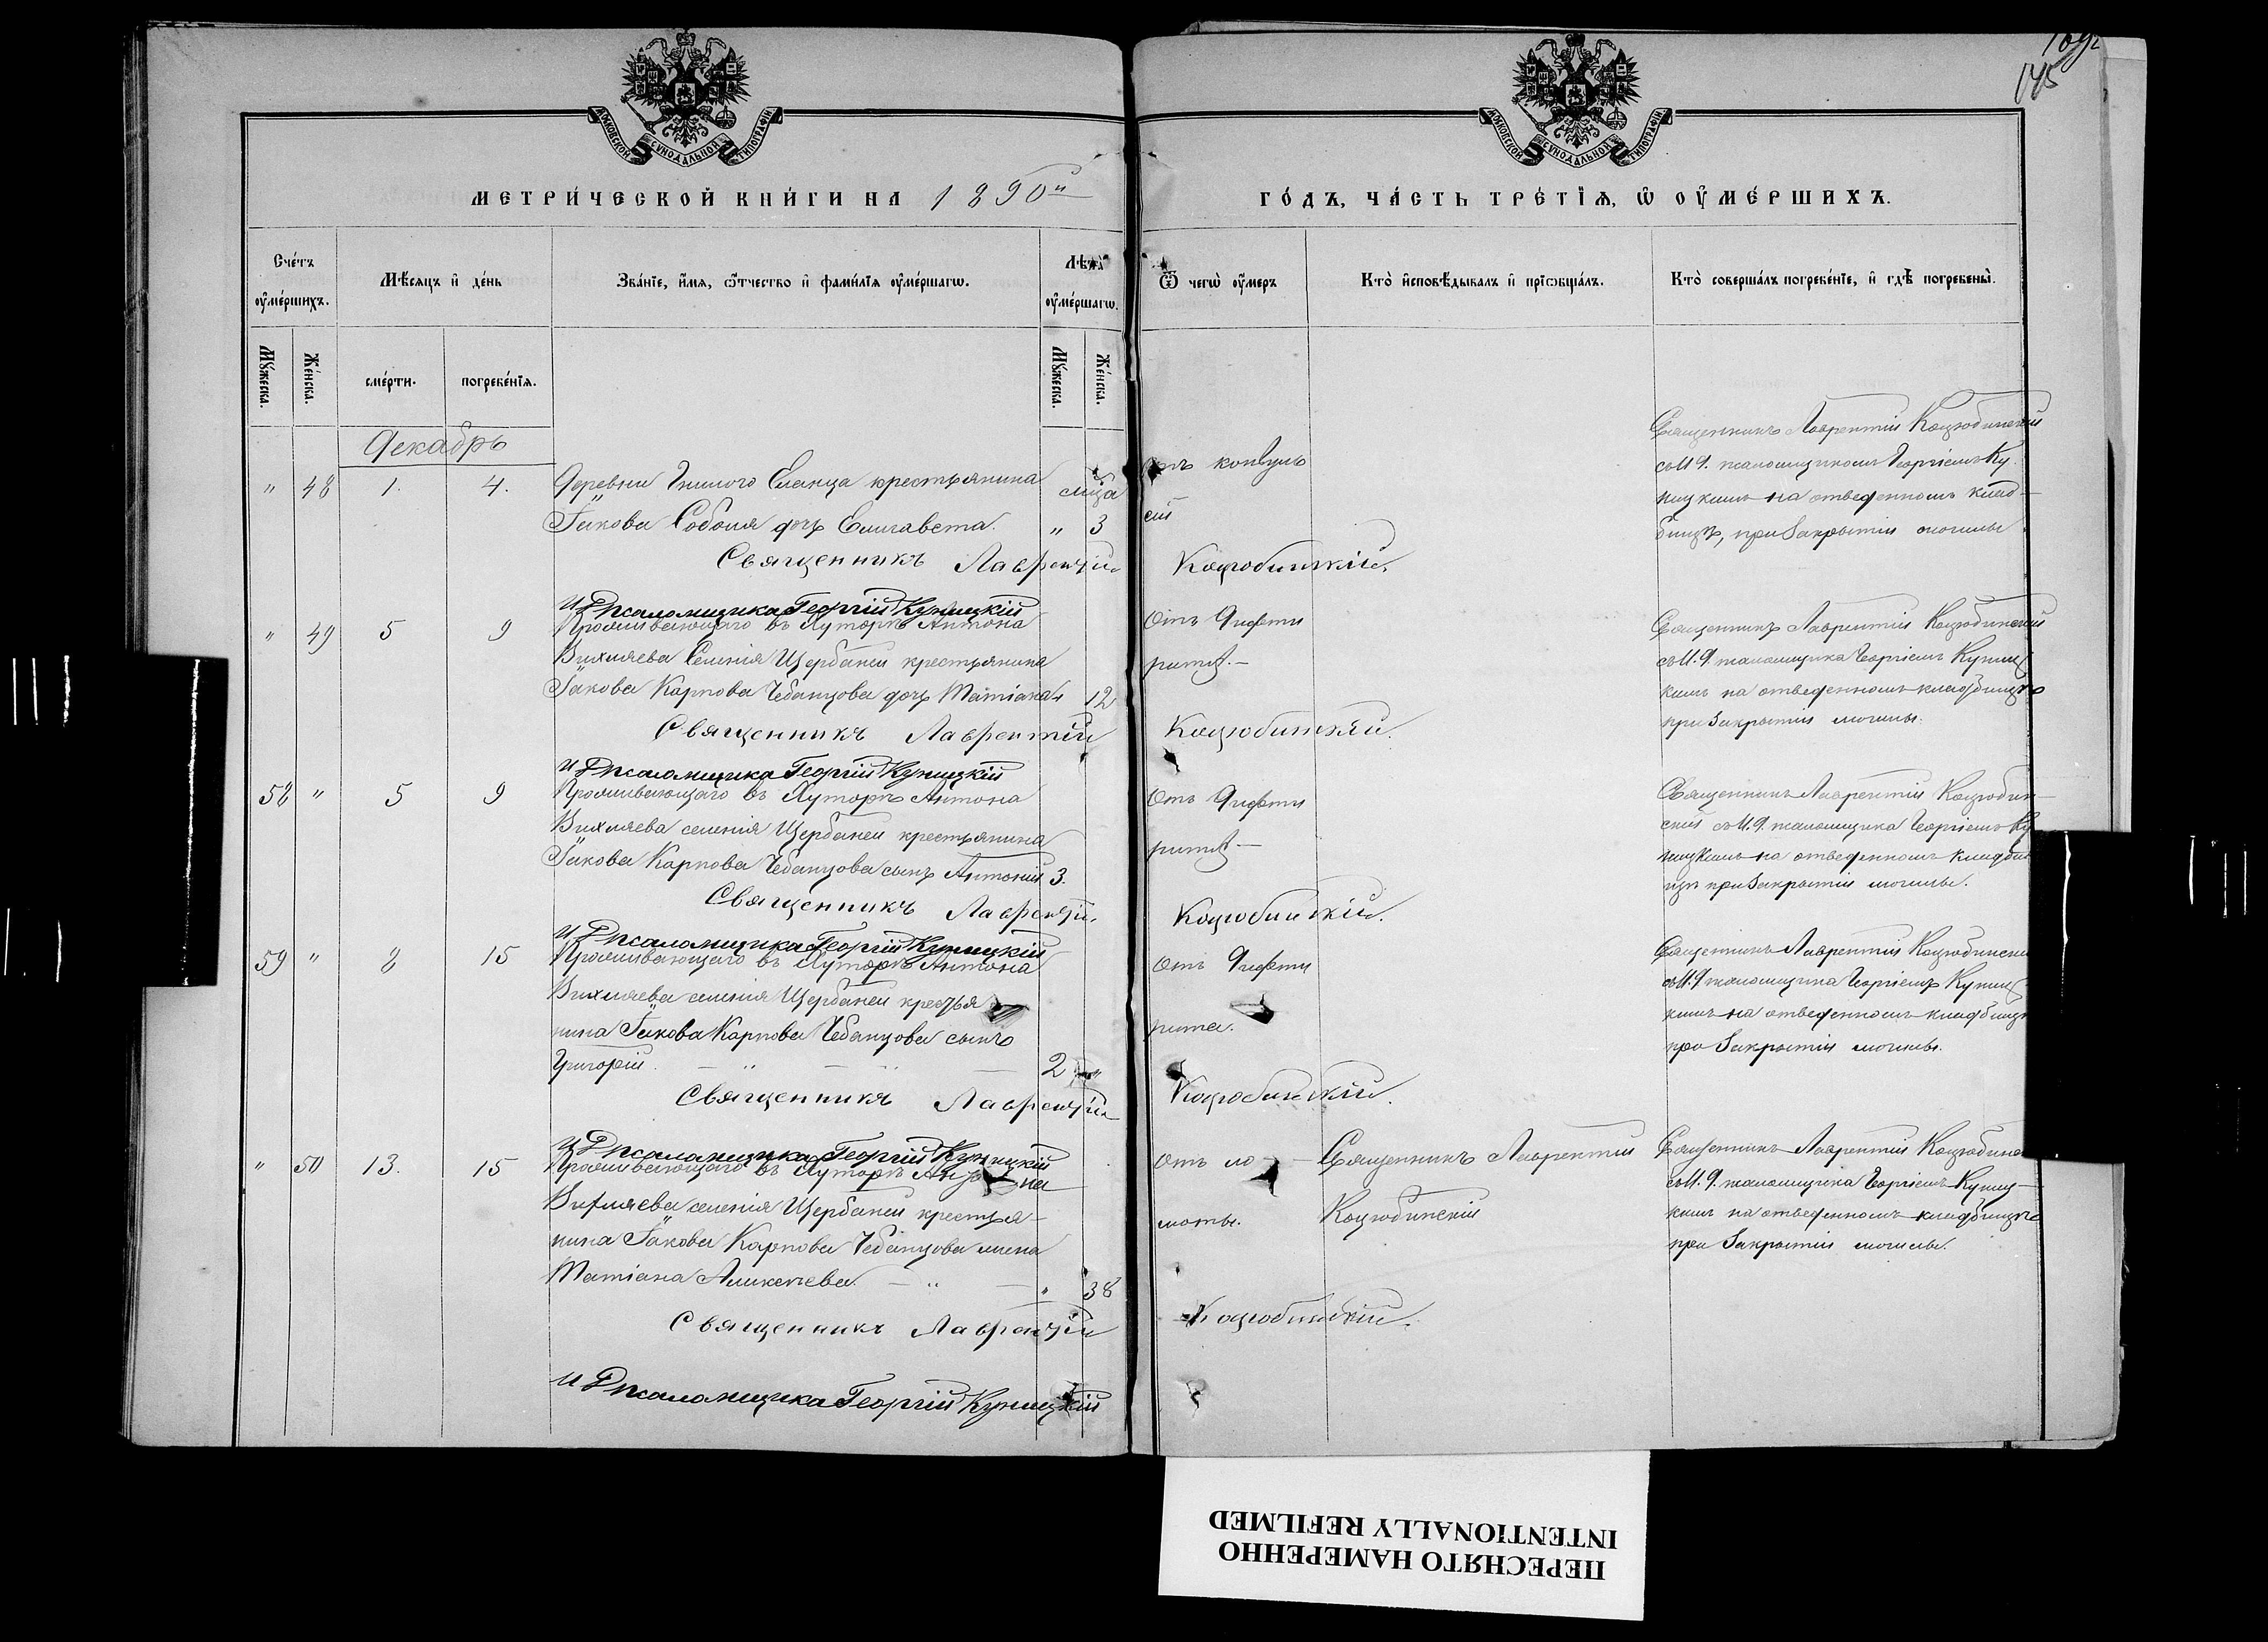 1692
145
МОСКОВСКОЙ СѴНОДАЛЬНОЙ ТИПОГРАФІИ
МОСКОВСКОЙ СѴНОДАЛЬНОЙ ТИПОГРАФІИ
МЕТРИ́ЧЕСКОЙ КНИ́ГИ НА 1890й
ГО́ДЪ, ЧА́СТЬ ТРЕ́ТІѦ, Ѽ ОУ҆МЕ́РШИХЪ.
Сче́тъ оу҆ме́ршихъ.
Мѣ́сяцъ и҆ де́нь
Зва́нїе, и҆́мя, ѻ҆́тчество и҆ фами́лїя оу҆ме́ршагѡ.
Лѣта̀ оу҆ме́ршагѡ.
Ѿ чегѡ̀ оу҆́меръ
Кто̀ и҆сповѣ́дывалъ и҆ прїѡбща́лъ.
Кто̀ соверша́лъ погребе́нїе, и҆ гдѣ̀ погребены̀.
Мꙋ́жеска.
Же́нска.
сме́рти.
погребе́нїя.
Мꙋ́жеска.
Же́нска.
Декабрь
" 48 1. 4. Деревни Гнилого Еланца крестьянина
Іакова Соболя дочь Елисавета. " 3
отъ конвуль
сій
Священникъ Лаврентій Коцюбинскій
съ И. Д. псаломщикомъ Георгіемъ Ку
ницкимъ на отведенномъ клад-
бищѣ, при закрытіи могилы
Священникъ Лаврентій Коцюбинскій.
И Д псаломщика Георгій Куницкій
" 49 5 9 Проживающаго въ Хуторѣ Антона
Вихляева селенія Щербаней крестьянина
Іакова Карпова Чебанцова дочь Татіана 12
Отъ Дифте
рита.-
Священникъ Лаврентій Коцюбинскій
съ И. Д. псаломщика Георгіемъ Куниц
кимъ на отведенномъ кладбищѣ
при закрытіи могилы.
Священникъ Лаврентій Коцюбинскій.
И Д псаломщика Георгій Куницкій
58 " 5 9 Проживающаго въ Хуторѣ Антона
Вихляева селенія Щербаней крестьянина
Іакова Карпова Чебанцова сынъ Антоній 3.
Отъ Дифте
рита-
Священникъ Лаврентій Коцюбин-
скій съ И. Д. псаломщика Георгіемъ Ку
ницкимъ на отведенномъ кладби
щѣ при закрытіи могилы.
Священникъ Лаврентій Коцюбинскій.
И Д псаломщика Георгій Куницкій
59 " 8 15 Проживающаго въ Хуторѣ Антона
Вихляева селенія Щербаней крестья
нина Іакова Карпова Чебанцова сынъ
Григорій. 2 "
Отъ Дифте
рита.
Священникъ Лаврентій Коцюбински
съ И. Д псаломщика Георгіемъ Куниц
кимъ на отведенномъ кладбищѣ
при закрытіи могилы.
Священникъ Лаврентій Коцюбинскій.
И Д псаломщика Георгій Куницкій
" 50 13. 15 Проживающаго въ Хуторѣ Антона
Вихляева селенія Щербаней крестья-
нина Іакова Карпова Чебанцова жена
Татіана " 38
Отъ ло
моты.
Священникъ Лаврентій
Коцюбинскій
Священникъ Лаврентій Коцюбинс
съ И. Д. псаломщика Георгіемъ Куниц-
кимъ на отведенномъ кладбищѣ
при закрытіи могилы.
Священникъ Лаврентій Коцюбинскій.
И Д псаломщика Георгій Куницкій
ПЕРЕСНЯТО НАМЕРЕННО
INTENTIONALLY REFILMED